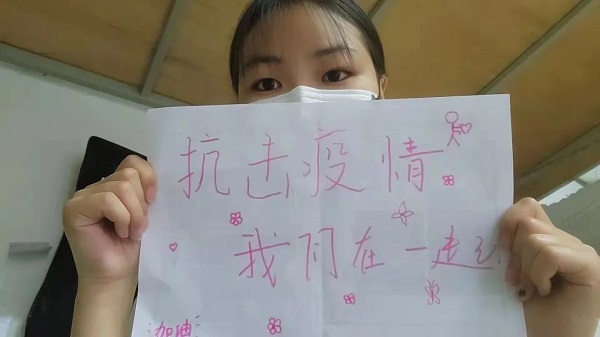 抗击疫情
我们在一起
加油!